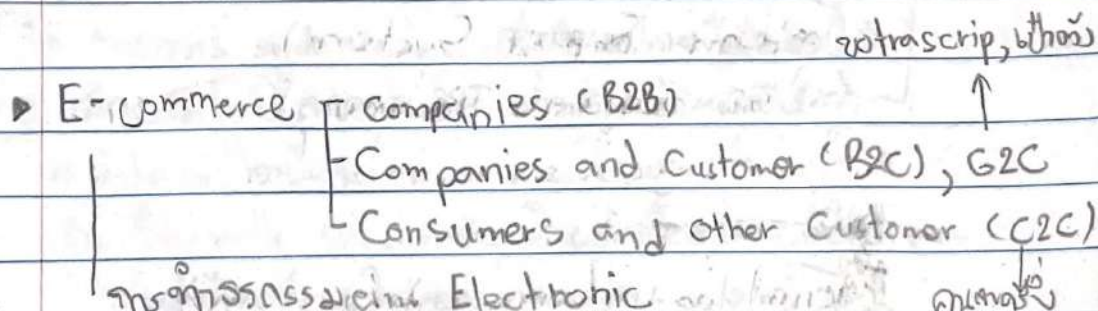 ขอtrascrip, เป๋าตัง
E-commerce Companies (B2B)
Companies and Customer (B2C), G2C
Consumers and other Customer (C2C)
การทำธุรกรรมผ่าน Electronic